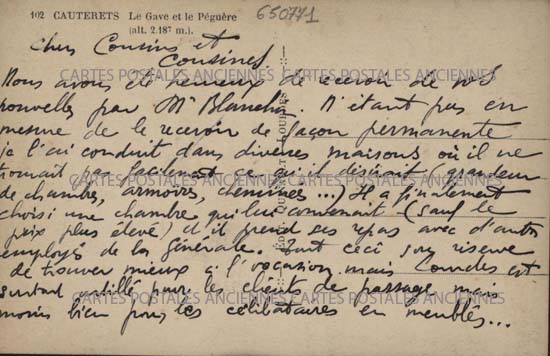 102 CAUTERETS Le Gave et le Péguère
(alt. 2.187 m.)
650771
Chers Cousins et
Cousines
Nous avons été heureux de recevoir de vos
nouvelles par Mr Blanchi. N'étant pas en
mesure de le recevoir de façon permanente
je l'ai conduit dans diverses maisons où il ne
trouvait pas facilement ce qu'il désirait (grandeur
de chambre, armoires, cheminée...) Il a finalement
choisi une chambre qui lui convenait (sauf le
prix plus élevé) et il prend ses repas avec d'autres
employés de la générale. Tout ceci sous réserve
de trouver mieux à l'occasion mais Lourdes est
surtout outillé pour les clients de passage, mais
moins bien pour les célibataires en meublés...
CARTES POSTALES ANCIENNES CARTES POSTALES ANCIENNES
CARTES POSTALES ANCIENNES CARTES POSTALES ANCIENNES
CARTES POSTALES ANCIENNES CARTES POSTALES ANCIENNES